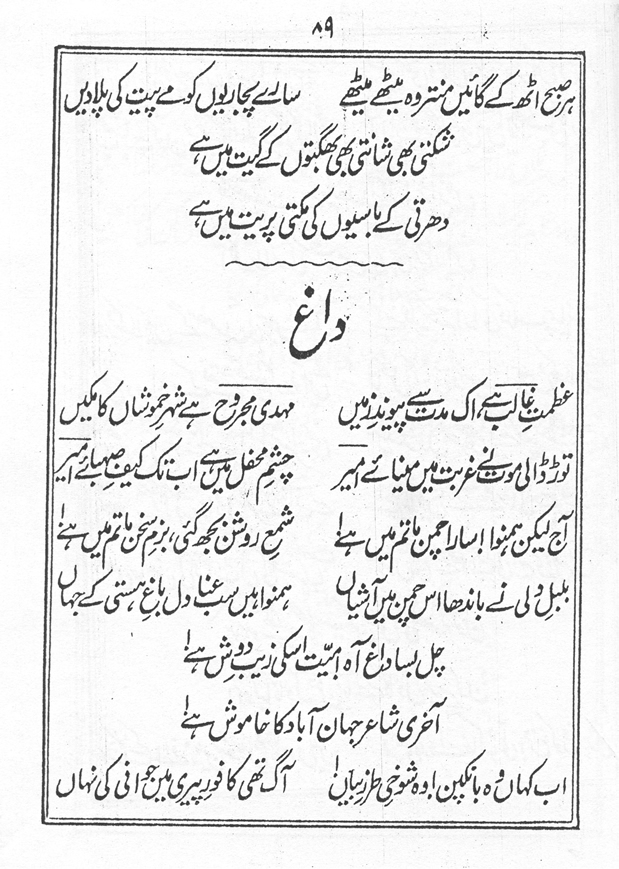 ۸۹
ہر صبح اٹھ کے گائیں منتر وہ میٹھے میٹھے سارے پجاریوں کو مے پیت کی پلا دیں
شکتی بھی شانتی بھی بھگتوں کے گیت میں ہے
دھرتی کے باسیوں کی مکتی پریت میں ہے
داغ
عظمتِ غالب ہے، اک مدت سے پیوندِ زمیں مہدی مجروح ہے شہرِ خموشاں کا مکیں
توڑ ڈالی موت نے غربت میں مینائے امیر چشمِ محفل میں ہے اب تک کیفِ صہبائے امیر
آج لیکن ہمنوا! سارا چمن ماتم میں ہے! شمعِ روشن بجھ گئی، بزمِ سخن ماتم میں ہے!
بلبلِ دلی نے باندھا اس چمن میں آشیاں ہمنوا ہیں سب عنادل باغِ ہستی کے جہاں
چل بسا داغ آہ! میّت اسکی زیبِ دوش ہے!
آخری شاعر جہان آباد کا خاموش ہے!
اب کہاں وہ بانکپن! وہ شوخیِ طرزِ بیاں! آگ تھی کافورِ پیری میں جوانی کی نہاں